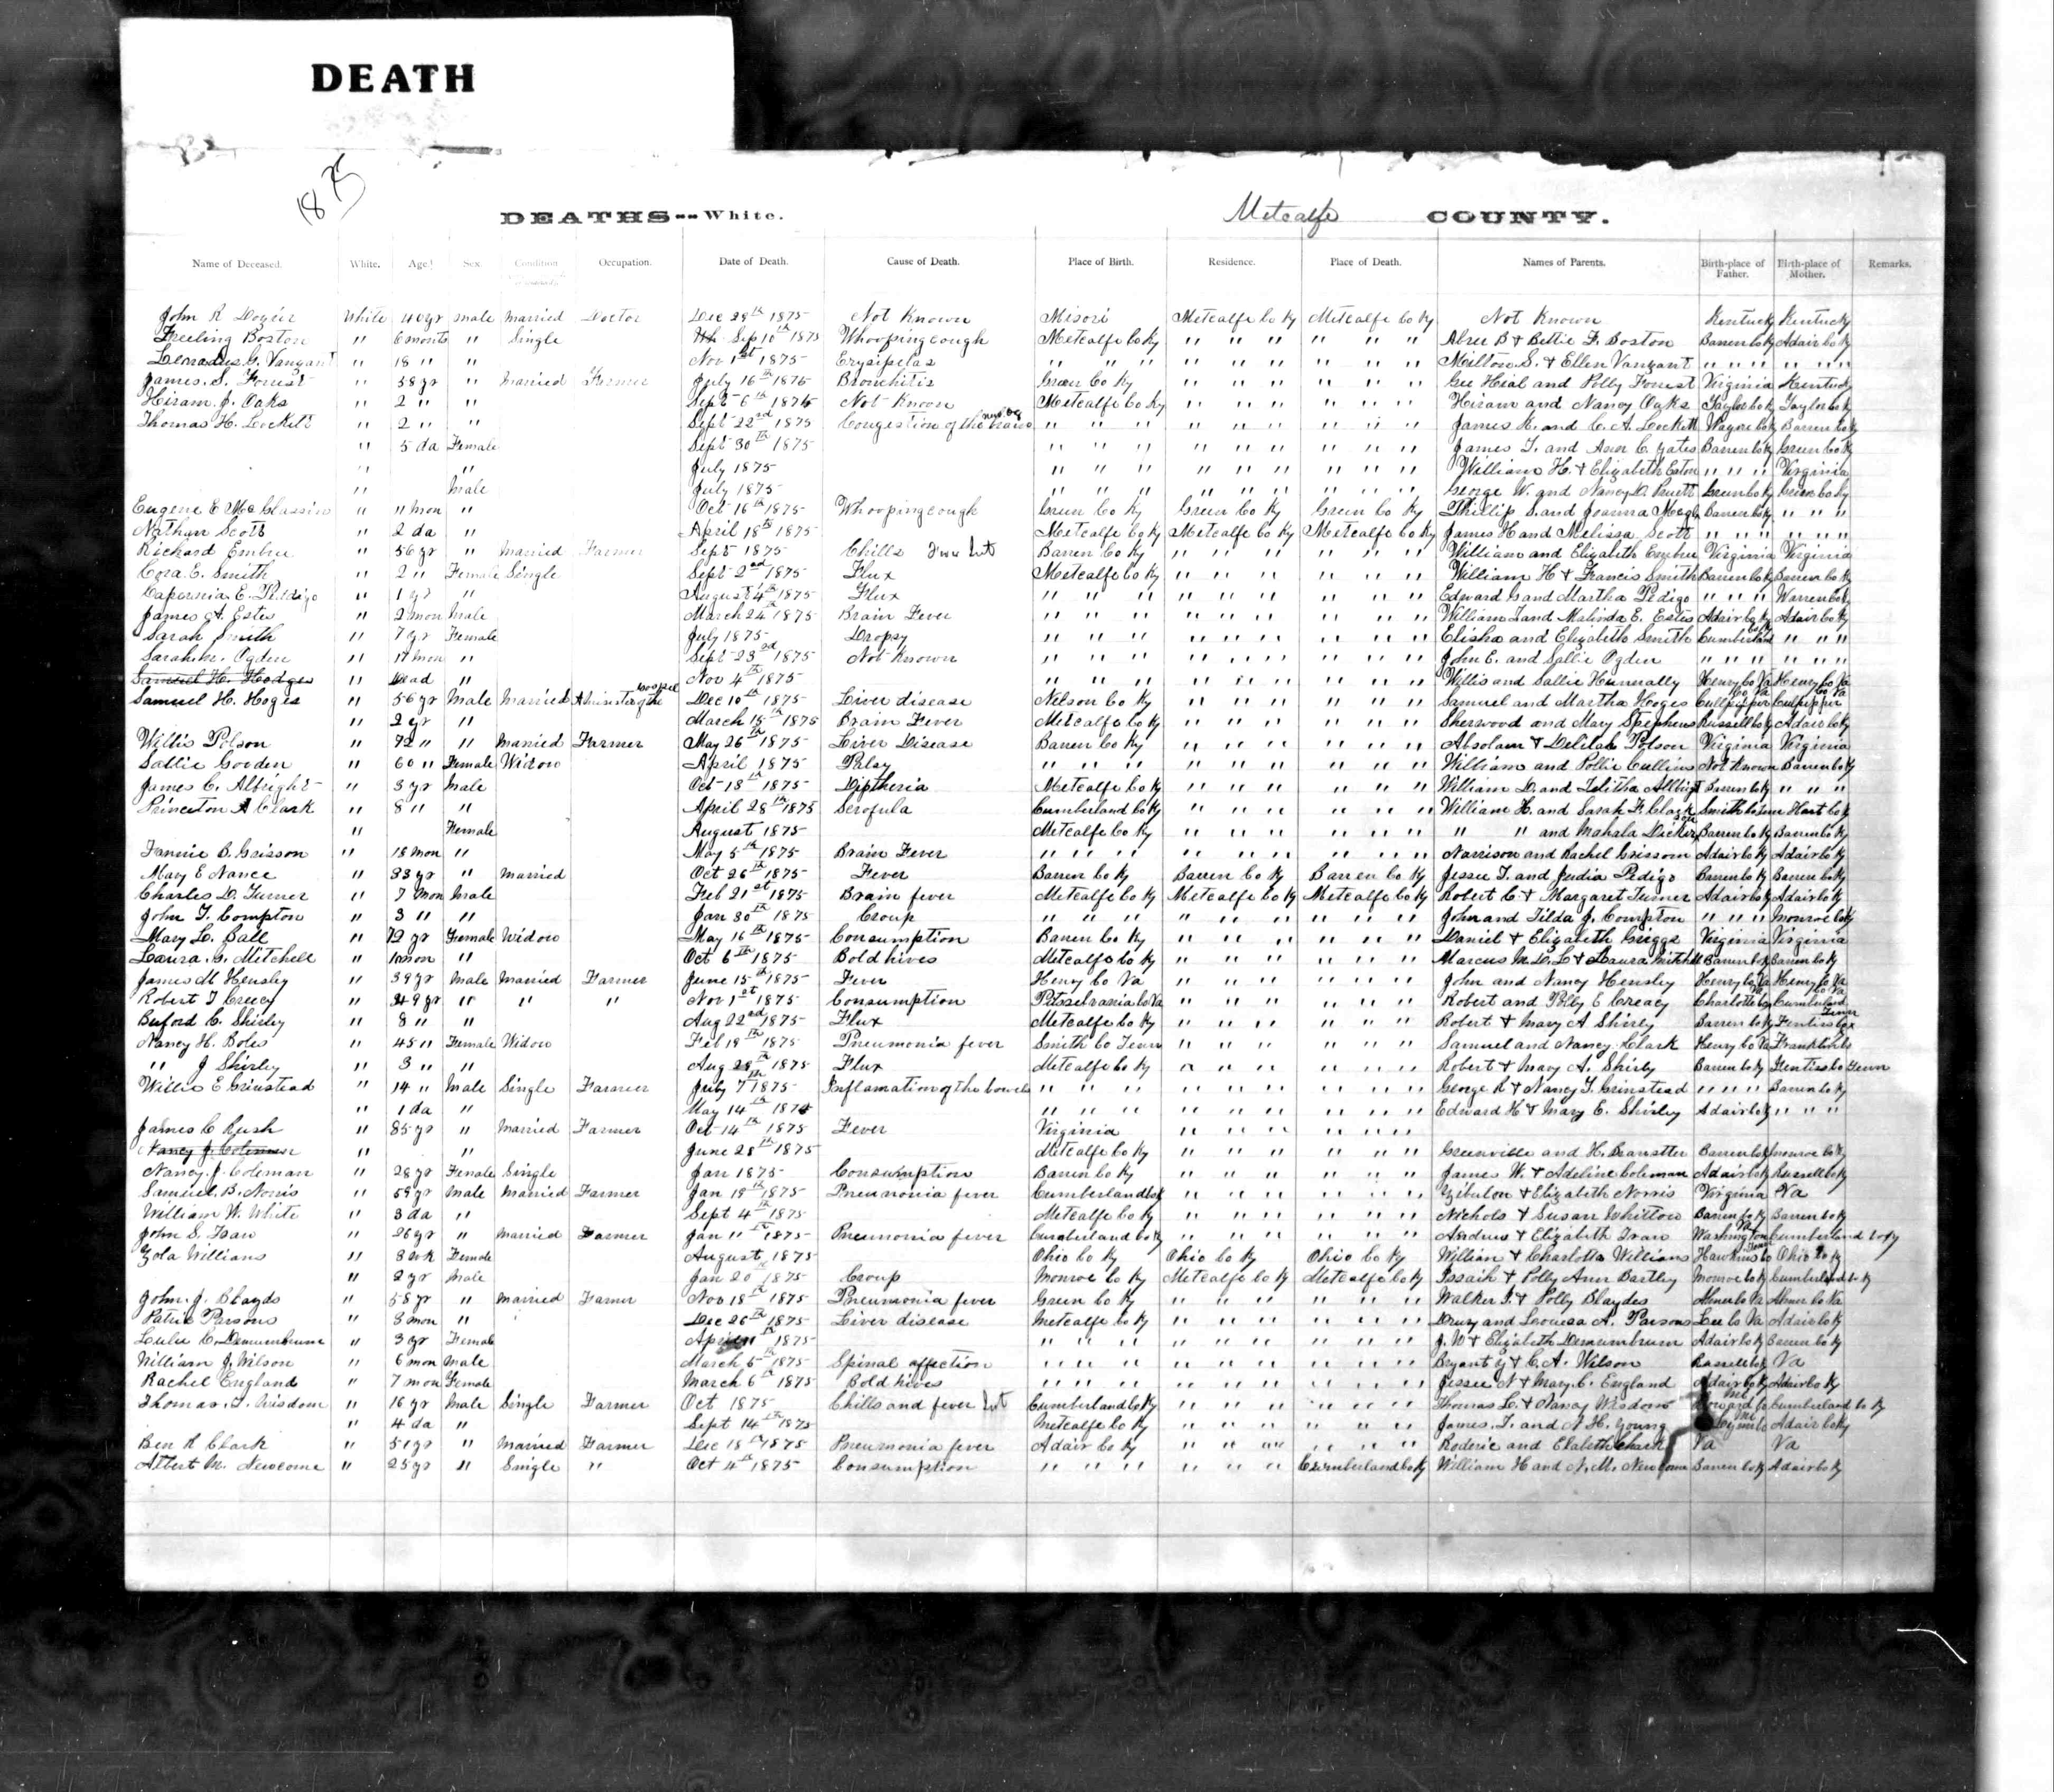 DEATH
1875
DEATHS--White. Metcalfe COUNTY.
Name of Deceased. White. Age. Sex. Condition Occupation. Date of Death. Cause of Death. Place of Birth. Residence. Place of Death. Names of Parents. Birth-place of Father. Birth-place of Mother. Remarks.
John R White 40 yr male Married Doctor Dec 28th 1875 Not Known Misori Metcalfe Co Ky Metcalfe Co Ky Not Known Kentucky Kentucky
Freeling Boston " 6 monts " Single Sep 10th 1875 Whoopingcough Metcalfe Co Ky " " " " " " Abree B + Bettie F. Boston Barren Co Ky Adair Co Ky
G. Vanzant " 18 " " Nov 1st 1875 Erysipelas " " " " " " " " " Milton S. + Ellen Vanzant " " " " " " "
James. S. Forrest " 58 yr " Married Farmer July 16th 1875 Bronchitis Green Co Ky " " " " " " and Polly Forrest Virginia Kentucky
Hiram. J. Oaks " 2 " " Sept 6th 1875 Not Known Metcalfe Co Ky " " " " " " Hiram and Nancy Oaks Taylor Co Ky Taylor Co Ky
Thomas H. Lockett " 2 " " Sept 22nd 1875 Congestion of the " " " " " " " " " James H. and C. A. Lockett Wayne Co Ky Barren Co Ky
" 5 da Female Sept 30th 1875 " " " " " " " " " James T. and Ann C. Yates Barren Co Ky Green Co Ky
" " July 1875 " " " " " " " " " William H. + Elizabeth Eaton " " " Virginia
" Male July 1875 " " " " " " " " " George W. and Nancy D. Pruett Green Co Ky Green Co Ky
Eugene E " 11 mon " Oct 16th 1875 Whoopingcough Green Co Ky Green Co Ky Green Co Ky Phillip S. and Joanna Barren Co Ky " " "
Nathan Scott " 2 da " April 18th 1875 Metcalfe Co Ky Metcalfe Co Ky Metcalfe Co Ky James H and Melissa Scott " " " " " " "
Richard Embree " 56 yr " Married Farmer Sept 1875 Chills Barren Co Ky " " " " " " William and Elizabeth Embree Virginia Virginia
Cora. E. Smith " 2 " Female Single Sept 2nd 1875 Flux Metcalfe Co Ky " " " " " " William H + Francis Smith Barren Co Ky Barren Co Ky
E. Pedigo " 1 yr " August 4th 1875 Flux " " " " " " " " " Edward G and Martha Pedigo " " " Warren Co Ky
James A. Estes " 2 mon Male March 24th 1875 Brain Fever " " " " " " " " " William L and Malinda E. Estes Adair Co Ky Adair Co Ky
Sarah Smith " 7 yr Female July 1875 Dropsy " " " " " " " " " Elisha and Elizabeth Smith Cumberland " " "
Sarah. M. Ogden " 17 mon " Sept 23rd 1875 Not Known " " " " " " " " " John E. and Sallie Ogden " " " " " " "
Samuel H. Hodges " " Nov 4th 1875 " " " " " " " " " Willis and Sallie Nunnally Henry Co Va Henry Co Va
Samuel H. Hoges " 56 yr Male Married Minister of the Gospel Dec 10th 1875 Liver disease Nelson Co Ky " " " " " " Samuel and Martha Hoges Cullpepper Co Va Culpepper Co Va
" 2 yr " March 15th 1875 Brain Fever Metcalfe Co Ky " " " " " " Sherwood and Mary Stephens Russell Co Ky Adair Co Ky
Willis Polson " 72 " " Married Farmer May 26th 1875 Liver Disease Barren Co Ky " " " " " " Absolam + Delilah Polson Virginia Virginia
Sallie Gooden " 60 " Female Widow April 1875 Palsy " " " " " " " " " William and Pollie Cullins Not Known Barren Co Ky
James C. Albright " 3 yr Male Oct 18th 1875 Diptheria Metcalfe Co Ky " " " " " " William D. and Talitha Albright Barren Co Ky " " "
Princeton A Clark " 8 " " April 28th 1875 Scrofula Cumberland Co Ky " " " " " " William H. and Sarah F. Clark Smith Co Tenn Hart Co Ky
" Female August 1875 Metcalfe Co Ky " " " " " " " " and Mahala Dickerson Barren Co Ky Barren Co Ky
Fannie B. Grisson " 18 mon " May 5th 1875 Brain Fever " " " " " " " " " Narrison and Rachel Grissom Adair Co Ky Adair Co Ky
Mary E Nance " 33 yr " Married Oct 26th 1875 Fever Barren Co Ky Barren Co Ky Barren Co Ky Jesse T. and Judia Pedigo Barren Co Ky Barren Co Ky
Charles D. Turner " 7 mon Male Feb 21st 1875 Brain fever Metcalfe Co Ky Metcalfe Co Ky Metcalfe Co Ky Robert C. + Margaret Turner Adair Co Ky Adair Co Ky
John T. Compton " 3 " " Jan 30th 1875 Croup " " " " " " " " " John and Tilda J. Compton " " " Monroe Co Ky
Mary L. Ball " 72 yr Female Widow May 16th 1875 Consumption Barren Co Ky " " " " " " Daniel + Elizabeth Griggs Virginia Virginia
Laura. G. Mitchell " 10 mon " Oct 6th 1875 Bold hives Metcalfe Co Ky " " " " " " Marcus M. D. L + Laura Mitchell Barren Co Ky Barren Co Ky
James M Hensley " 39 yr Male Married Farmer June 15th 1875 Fever Henry Co Va " " " " " " John and Nancy Hensley Henry Co Va Henry Co Va
Robert T Creacy " 49 yr " " " Nov 1st 1875 Consumption Pitsselvania Co Va " " " " " " Robert and Polly E Creacy Charlotte Co Va Cumberland Co Va
Buford C. Shirley " 8 " " Aug 22nd 1875 Flux Metcalfe Co Ky " " " " " " Robert + Mary A Shirley Barren Co Ky Fentiss Co Tenn
Nancy H. Boles " 45 " Female Widow Feb 18th 1875 Pneumonia fever Smith Co Tenn " " " " " " Samuel and Nancy Clark Henry Co Va Franklin Co
" J Shirley " 3 " " Aug 28th 1875 Flux Metcalfe Co Ky " " " " " " Robert + Mary A. Shirley Barren Co Ky Fentiss Co Tenn
Willie E Grinstead " 14 " Male Single Farmer July 7th 1875 Inflamation of the bowels " " " " " " " " " George R + Nancy T. Grinstead " " " " Barren Co Ky
" 1 da " May 14th 1875 " " " " " " " " " Edward H + Mary E. Shirley Adair Co Ky " " "
James C Rush " 85 yr " Married Farmer Oct 14th 1875 Fever Virginia " " " " " " "
Nancy J. Coleman " " June 28th 1875 Metcalfe Co Ky " " " " " " Greenville and H. Barren Co Ky Monroe Co Ky
Nancy. J. Coleman " 28 yr Female Single Jan 1875 Consumption Barren Co Ky " " " " " " James W. + Adeline Coleman Adair Co Ky Russell Co Ky
Samuel. B. Norris " 59 yr Male Married Farmer Jan 19th 1875 Pneumonia fever Cumberland Co Ky " " " " " " Zebulon + Elizabeth Norris Virginia Va
William W. White " 3 da " Sept 4th 1875 Metcalfe Co Ky " " " " " " Nichols + Susan Whitlow Barren Co Ky Barren Co Ky
John S. " 26 yr " Married Farmer Jan 11th 1875 Pneumonia fever Cumberland Co Ky " " " " " " Andrew + Elizabeth Washington Va Cumberland Co Ky
Zola Williams " 3 wk Female August 1875 Ohio Co Ky Ohio Co Ky Ohio Co Ky William + Charlotta Williams Hawkins Co Tenn Ohio Co Ky
" 2 yr Male Jan 20th 1875 Croup Monroe Co Ky Metcalfe Co Ky Metcalfe Co Ky Issaih + Polly Ann Bartley Monroe Co Ky Cumberland Co Ky
John. J. Blayds " 58 yr " Married Farmer Nov 18th 1875 Pneumonia fever Green Co Ky " " " " " " Walker J. + Polly Blaydes Co Va Co Va
Parsons " 8 mon " Dec 26th 1875 Liver disease Metcalfe Co Ky " " " " " " Drury and Louisa A. Parsons Lee Co Va Adair Co Ky
Lulu C. Demumbrume " 3 yr Female April 1875 " " " " " " " " " J. W + Elizabeth Demumbrum Adair Co Ky Barren Co Ky
William J. Wilson " 6 mon Male March 5th 1875 Spinal affection " " " " " " " " " Bryant Y + C. A. Wilson Russell Co Ky Va
Rachel England " 7 mon Female March 6th 1875 Bold hives " " " " " " " " " Jessee N + Mary. C. England Adair Co Ky Adair Co Ky
Thomas. J. Wisdom " 16 yr Male Single Farmer Oct 1875 Chills and fever Cumberland Co Ky " " " " " " Thomas L. + Nancy Wisdom Howard Co Cumberland Co Ky
" 4 da " Sept 14th 1875 Metcalfe Co Ky " " " " " " James. T. and N. H. Young Adair Co Ky
Ben R Clark " 51 yr " Married Farmer Dec 18th 1875 Pneumonia fever Adair Co Ky " " " " " " Roderic and Elabeth Clark Va Va
Albert M. Newcome " 25 yr " Single " Oct 4th 1875 Consumption " " " " " " Cumberland Co Ky William H and N. M. Newcome Barren Co Ky Adair Co Ky